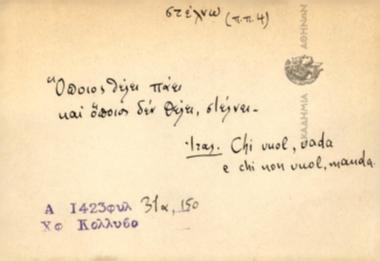 στέλνω (π.π.4)
ΑΚΑΔΗΜΙΑ ΑΘΗΝΩΝ
"Όποιος θέλει πάει
και όποιος δεν θέλει, στέλνει.-
Ιταλ. Chi vuol, vada
e chi non vuol, manda.
Α 1423φυλ 31α, 150
Χφ Κολλυβο